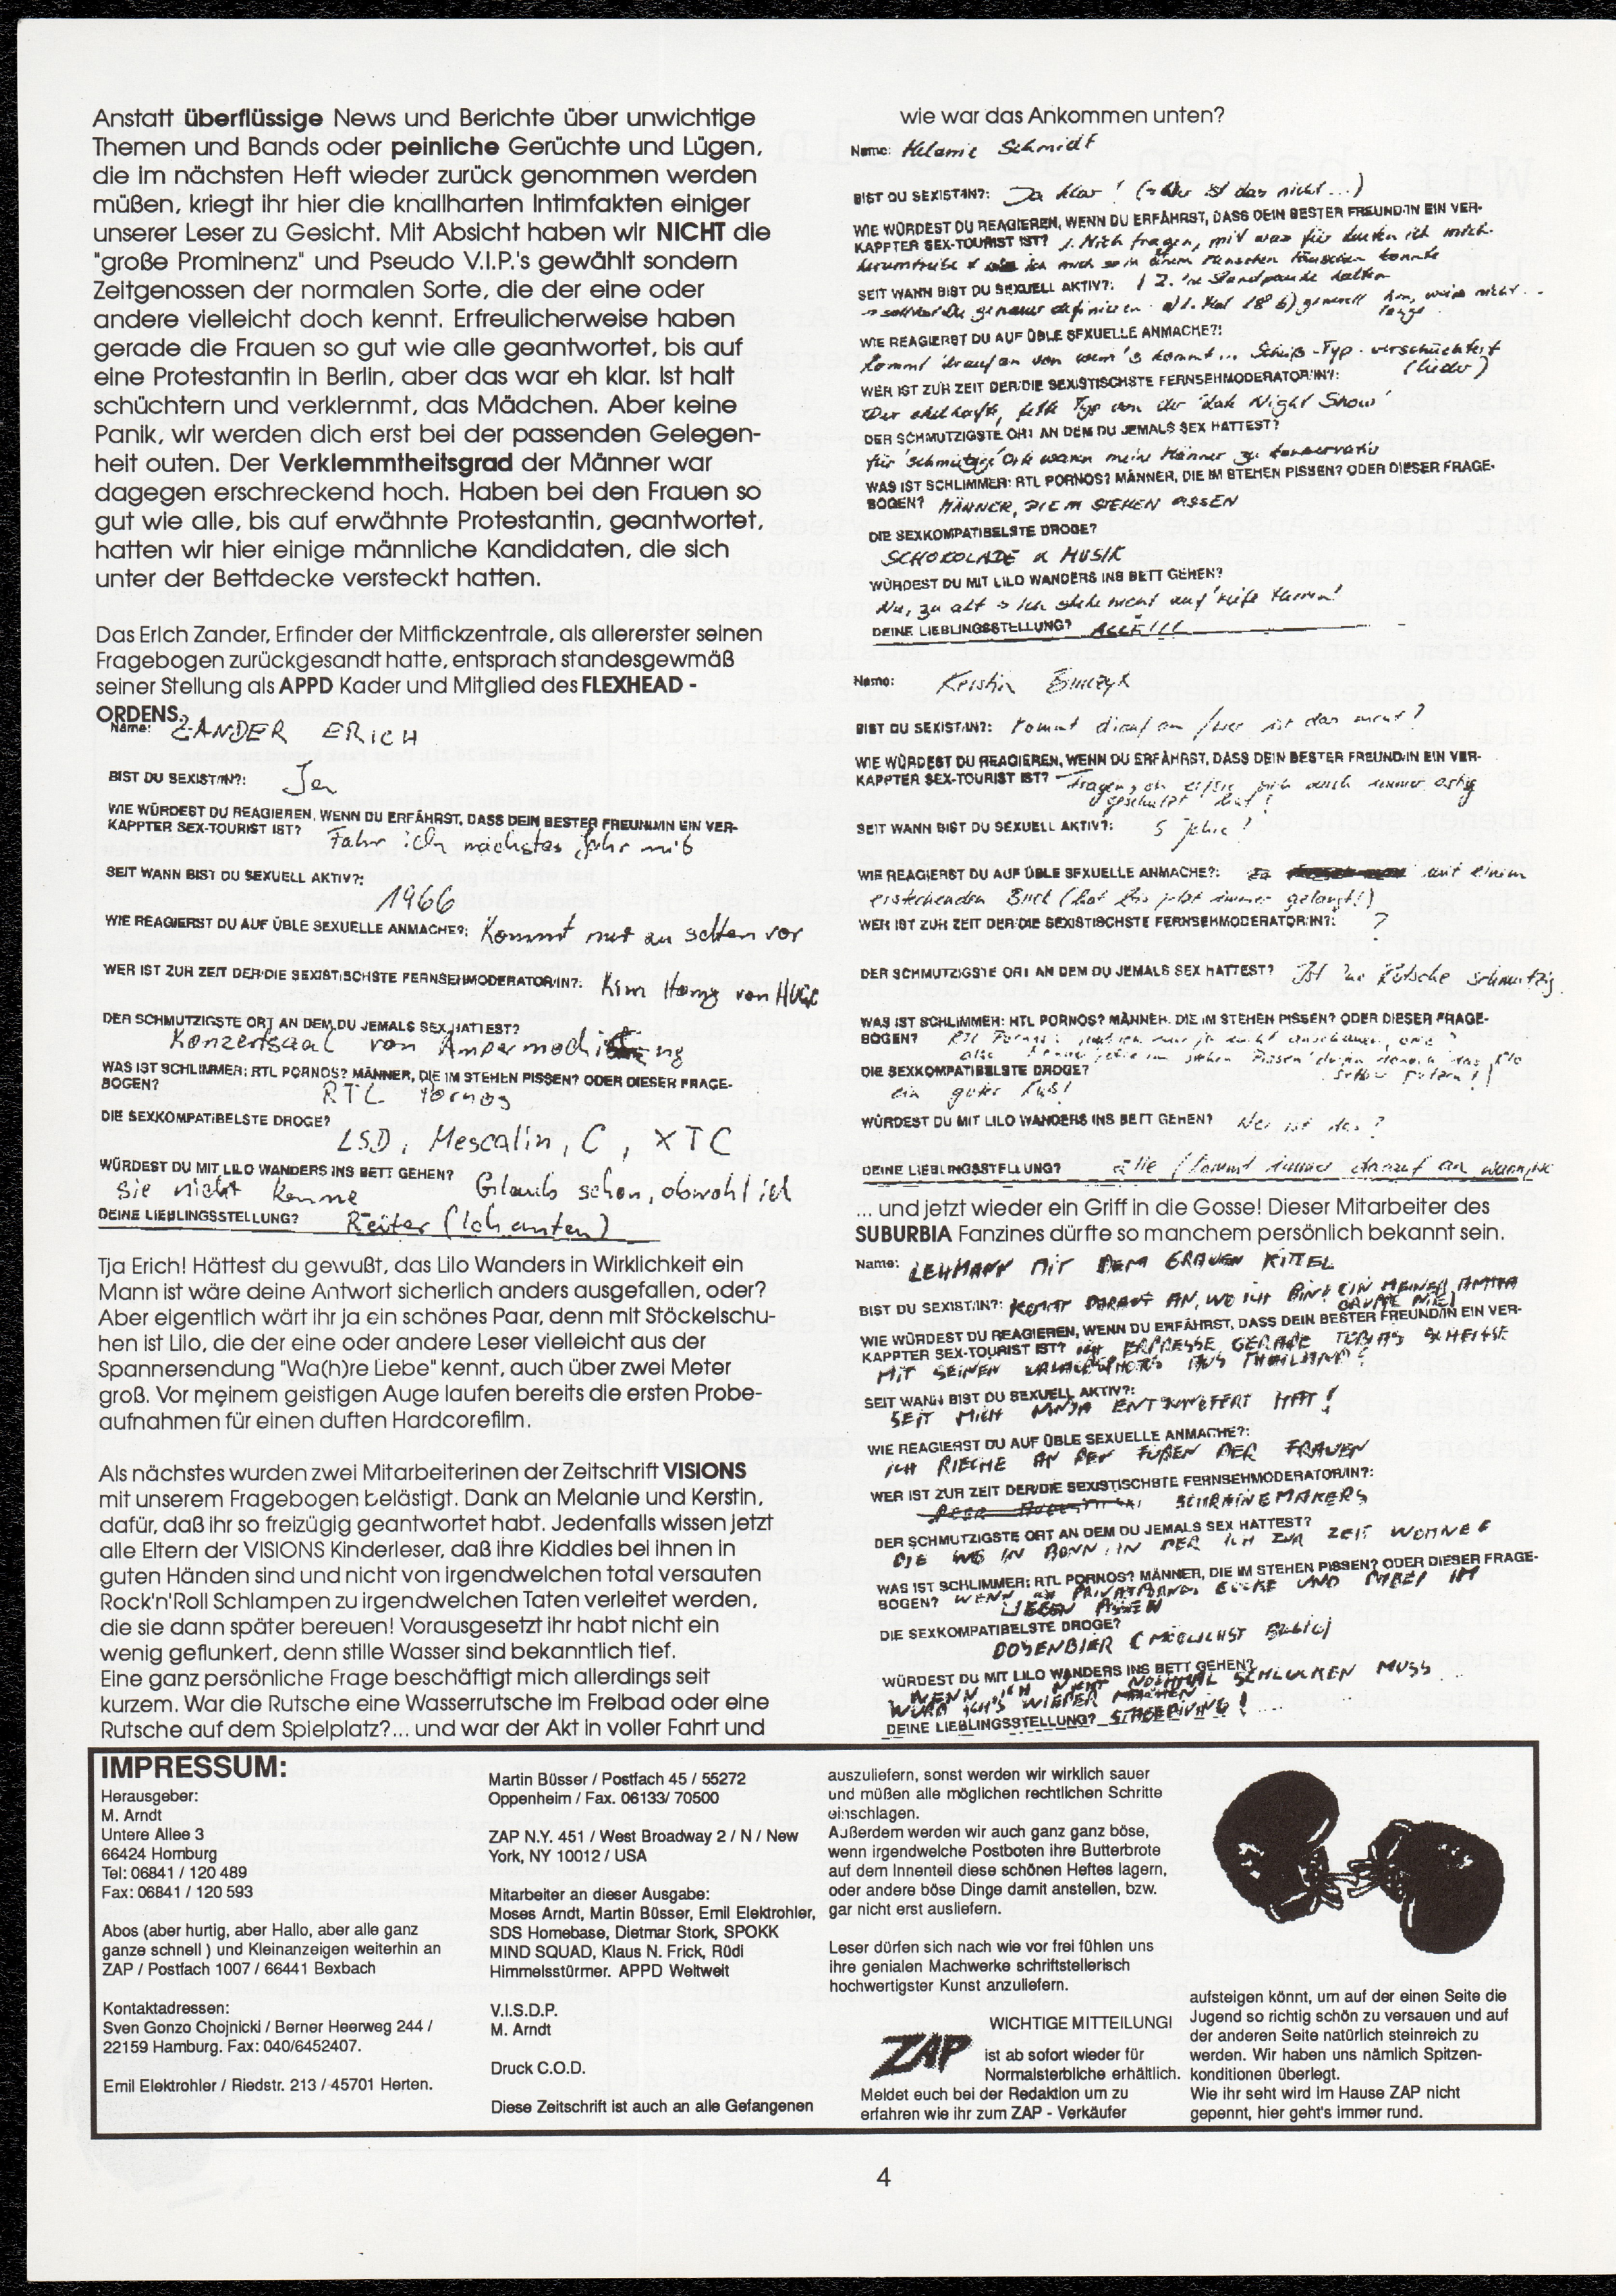 Anstatt überflüssige News und Berichte über unwichtige
Themen und Bands oder peinliche Gerüchte und Lügen,
die im nächsten Heft wieder zurück genommen werden
müßen, kriegt ihr hier die knallharten Intimfakten einiger
unserer Leser zu Gesicht. Mit Absicht haben wir NICHT die
"große Prominenz" und Pseudo V.I.P.'s gewählt sondern
Zeitgenossen der normalen Sorte, die der eine oder
andere vielleicht doch kennt. Erfreulicherweise haben
gerade die Frauen so gut wie alle geantwortet, bis auf
eine Protestantin in Berlin, aber das war eh klar. Ist halt
schüchtern und verklemmt, das Mädchen. Aber keine
Panik, wir werden dich erst bei der passenden Gelegen-
heit outen. Der Verklemmtheitsgrad der Männer war
dagegen erschreckend hoch. Haben bei den Frauen so
gut wie alle, bis auf erwähnte Protestantin, geantwortet,
hatten wir hier einige männliche Kandidaten, die sich
unter der Bettdecke versteckt hatten.
Das Erich Zander, Erfinder der Mitfickzentrale, als allererster seinen
Fragebogen zurückgesandt hatte, entsprach standesgewmäß
seiner Stellung als APPD Kader und Mitglied des FLEXHEAD -
ORDENS.
Name: ZANDER ERICH
BIST DU SEXIST/IN?: Ja
WIE WÜRDEST DU REAGIEREN, WENN DU ERFÄHRST, DASS DEIN BESTER FREUND/IN EIN VER-
KAPPTER SEX-TOURIST IST? Fahr ich nächstes Jahr mit
SEIT WANN BIST DU SEXUELL AKTIV?:
1966
WIE REAGIERST DU AUF ÜBLE SEXUELLE ANMACHE?: Kommt nur zu selten vor
WER IST ZUR ZEIT DER/DIE SEXISTISCHSTE FERNSEHMODERATOR/IN?: Kim
DER SCHMUTZIGSTE ORT AN DEM DU JEMALS SEX HATTEST?
Konzertsaal von
WAS IST SCHLIMMER: RTL PORNOS? MÄNNER, DIE IM STEHEN PISSEN? ODER DIESER FRAGE-
BOGEN? RTL Pornos
DIE SEXKOMPATIBELSTE DROGE?
LSD, Mescalin, C, XTC
WÜRDEST DU MIT LILO WANDERS INS BETT GEHEN? Glaub schon, obwohl ich
sie nicht kenne
DEINE LIEBLINGSSTELLUNG? Reiter (Ich unten)
Tja Erich! Hättest du gewußt, das Lilo Wanders in Wirklichkeit ein
Mann ist wäre deine Antwort sicherlich anders ausgefallen, oder?
Aber eigentlich wärt ihr ja ein schönes Paar, denn mit Stöckelschu-
hen ist Lilo, die der eine oder andere Leser vielleicht aus der
Spannersendung "Wa(h)re Liebe" kennt, auch über zwei Meter
groß. Vor meinem geistigen Auge laufen bereits die ersten Probe-
aufnahmen für einen duften Hardcorefilm.
Als nächstes wurden zwei Mitarbeiterinen der Zeitschrift VISIONS
mit unserem Fragebogen belästigt. Dank an Melanie und Kerstin,
dafür, daß ihr so freizügig geantwortet habt. Jedenfalls wissen jetzt
alle Eltern der VISIONS Kinderleser, daß ihre Kiddles bei ihnen in
guten Händen sind und nicht von irgendwelchen total versauten
Rock'n'Roll Schlampen zu irgendwelchen Taten verleitet werden,
die sie dann später bereuen! Vorausgesetzt ihr habt nicht ein
wenig geflunkert, denn stille Wasser sind bekanntlich tief.
Eine ganz persönliche Frage beschäftigt mich allerdings seit
kurzem. War die Rutsche eine Wasserrutsche im Freibad oder eine
Rutsche auf dem Spielplatz?... und war der Akt in voller Fahrt und
wie war das Ankommen unten?
Name: Melanie Schmidt
BIST DU SEXIST/IN?: Ja klar! (→ Wer ist das nicht...)
WIE WÜRDEST DU REAGIEREN, WENN DU ERFÄHRST, DASS DEIN BESTER FREUND/IN EIN VER-
KAPPTER SEX-TOURIST IST? 1. Mich fragen, mit was für Leuten ich mich
herumtreibe & ich mich so in einem Menschen täuschen konnte
SEIT WANN BIST DU SEXUELL AKTIV?: 2. 'ne Standpauke halten
WIE REAGIERST DU AUF ÜBLE SEXUELLE ANMACHE?:
Kommt drauf an von wem's kommt... Scheiß-Typ - verschüchtert
WER IST ZUR ZEIT DER/DIE SEXISTISCHSTE FERNSEHMODERATOR/IN?: (leider)
Der ekelhafte, fette Typ von der 'Late Night Show'
DER SCHMUTZIGSTE ORT AN DEM DU JEMALS SEX HATTEST?
für 'schmutzige' Orte waren meine Männer zu konservativ
WAS IST SCHLIMMER: RTL PORNOS? MÄNNER, DIE IM STEHEN PISSEN? ODER DIESER FRAGE-
BOGEN? MÄNNER, DIE IM STEHEN PISSEN
DIE SEXKOMPATIBELSTE DROGE?
SCHOKOLADE & MUSIK
WÜRDEST DU MIT LILO WANDERS INS BETT GEHEN?
Nu, zu alt → Ich stehe nicht auf 'reife Herren'
DEINE LIEBLINGSSTELLUNG? ALLE!!!
Name: Kerstin
BIST DU SEXIST/IN?: Kommt drauf an / wer ist das nicht?
WIE WÜRDEST DU REAGIEREN, WENN DU ERFÄHRST, DASS DEIN BESTER FREUND/IN EIN VER-
KAPPTER SEX-TOURIST IST? Fragen, ob er/sie sich auch immer artig
geschützt hat!
SEIT WANN BIST DU SEXUELL AKTIV?: 5 Jahre!
WIE REAGIERST DU AUF ÜBLE SEXUELLE ANMACHE?: mit einem
erstechenden Blick (hat bis jetzt immer gelangt!)
WER IST ZUR ZEIT DER/DIE SEXISTISCHSTE FERNSEHMODERATOR/IN?: ?
DER SCHMUTZIGSTE ORT AN DEM DU JEMALS SEX HATTEST? Ist 'ne Rutsche schmutzig
WAS IST SCHLIMMER: RTL PORNOS? MÄNNER, DIE IM STEHEN PISSEN? ODER DIESER FRAGE-
BOGEN? RTL Pornos:
DIE SEXKOMPATIBELSTE DROGE?
ein guter Kuß!
WÜRDEST DU MIT LILO WANDERS INS BETT GEHEN? Wer ist das?
DEINE LIEBLINGSSTELLUNG? alle (kommt immer darauf an
... und jetzt wieder ein Griff in die Gosse! Dieser Mitarbeiter des
SUBURBIA Fanzines dürfte so manchem persönlich bekannt sein.
Name: LEHMANN MIT DEM GRAUEN KITTEL
BIST DU SEXIST/IN?: KOMMT DARAUF AN, WO ICH BIN! IN MEINER ANTIFA
GRUPPE NIE!
WIE WÜRDEST DU REAGIEREN, WENN DU ERFÄHRST, DASS DEIN BESTER FREUND/IN EIN VER-
KAPPTER SEX-TOURIST IST? ICH ERPRESSE GERADE TOBIAS SCHEISSE
MIT SEINEN URLAUBSPHOTOS AUS THAILAND!
SEIT WANN BIST DU SEXUELL AKTIV?:
SEIT MICH NINJA ENTJUNGFERT HAT!
WIE REAGIERST DU AUF ÜBLE SEXUELLE ANMACHE?:
ICH RIECHE AN DEN FÜßEN DER FRAUEN
WER IST ZUR ZEIT DER/DIE SEXISTISCHSTE FERNSEHMODERATOR/IN?:
SCHREINEMAKERS
DER SCHMUTZIGSTE ORT AN DEM DU JEMALS SEX HATTEST?
DIE WG IN BONN, IN DER ICH ZUR ZEIT WOHNE
WAS IST SCHLIMMER: RTL PORNOS? MÄNNER, DIE IM STEHEN PISSEN? ODER DIESER FRAGE-
BOGEN? WENN UND DABEI IM
LIEGEN PISSEN
DIE SEXKOMPATIBELSTE DROGE?
DOSENBIER (MÖGLICHST BILLIG)
WÜRDEST DU MIT LILO WANDERS INS BETT GEHEN?
WENN ICH NICHT NOCHMAL SCHLUCKEN MUSS
WÜRD ICH'S WIEDER MACHEN
DEINE LIEBLINGSSTELLUNG? STAGEDIVING!
IMPRESSUM:
Herausgeber:
M. Arndt
Untere Allee 3
66424 Homburg
Tel: 06841 / 120 489
Fax: 06841 / 120 593
Abos (aber hurtig, aber Hallo, aber alle ganz
ganze schnell ) und Kleinanzeigen weiterhin an
ZAP / Postfach 1007 / 66441 Bexbach
Kontaktadressen:
Sven Gonzo Chojnicki / Berner Heerweg 244 /
22159 Hamburg. Fax: 040/6452407.
Emil Elektrohler / Riedstr. 213 / 45701 Herten.
Martin Büsser / Postfach 45 / 55272
Oppenheim / Fax. 06133/ 70500
ZAP N.Y. 451 / West Broadway 2 / N / New
York, NY 10012 / USA
Mitarbeiter an dieser Ausgabe:
Moses Arndt, Martin Büsser, Emil Elektrohler,
SDS Homebase, Dietmar Stork, SPOKK
MIND SQUAD, Klaus N. Frick, Rüdi
Himmelsstürmer. APPD Weltweit
V.I.S.D.P.
M. Arndt
Druck C.O.D.
Diese Zeitschrift ist auch an alle Gefangenen
auszuliefern, sonst werden wir wirklich sauer
und müßen alle möglichen rechtlichen Schritte
einschlagen.
Außerdem werden wir auch ganz ganz böse,
wenn irgendwelche Postboten ihre Butterbrote
auf dem Innenteil diese schönen Heftes lagern,
oder andere böse Dinge damit anstellen, bzw.
gar nicht erst ausliefern.
Leser dürfen sich nach wie vor frei fühlen uns
ihre genialen Machwerke schriftstellerisch
hochwertigster Kunst anzuliefern.
WICHTIGE MITTEILUNG!
ZAP ist ab sofort wieder für
Normalsterbliche erhältlich.
Meldet euch bei der Redaktion um zu
erfahren wie ihr zum ZAP - Verkäufer
aufsteigen könnt, um auf der einen Seite die
Jugend so richtig schön zu versauen und auf
der anderen Seite natürlich steinreich zu
werden. Wir haben uns nämlich Spitzen-
konditionen überlegt.
Wie ihr seht wird im Hause ZAP nicht
gepennt, hier geht's immer rund.
4